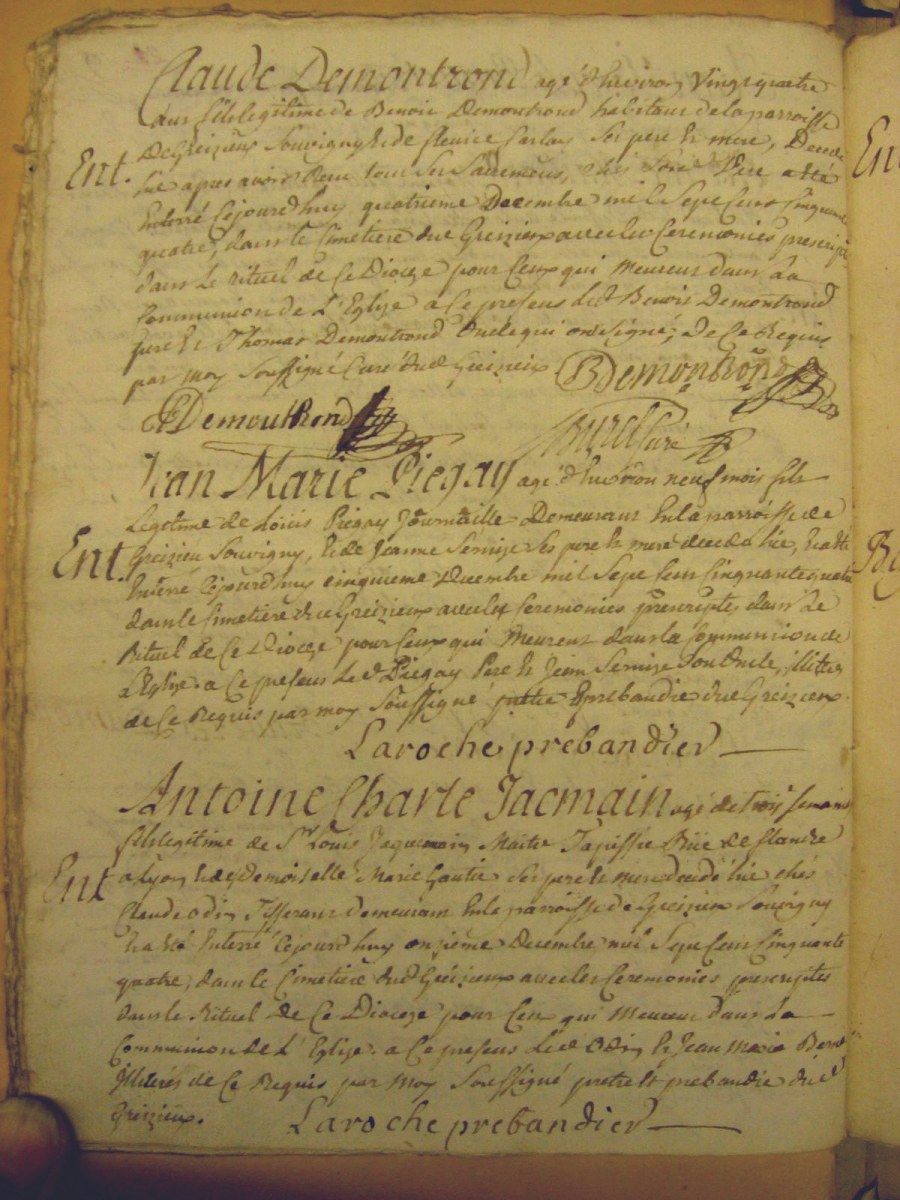 Claude Demontrond agé d'huviron vingt quatre
ans fils legitime de Benoit Demontrond habitant de la parroisse
De Greizieu Souvigny & de fleurie ses pere & mere, Decedé
Ent.
hie apres avoir Reçu tous ses Sacremens, chés Pere a été
Enterré Cejourd'huy quatrieme Decembre mil Sept Cens Cinquante
quatre, dans le Cimetiere dud Greizieux avec les Ceremonies prescriptes
dans le Rituel de Ce Dioceze pour Ceux qui Meurent dans La
Communion de L'Eglize a Ce presens led Benoit Demontrond
pere & Thomas Demontrond Oncle qui ont Signé, De Ce Requis
par moy Soussigné Curé dud Greizieux BDemontrond
TDemontrond Curé
Jean Marie Piegay agé d'huviron neuf mois fils
Legitime de Loüis Piegay Journaille Demeurant En la parroisse de
Greizieu Souvigny, & de Jeanne Sernize Ses pere & mere decedé hie, & a été
Ent.
Enterré Cejourd'huy cinquieme Decembre mil Sept Cens Cinquante quatre
dans le Cimetiere dud Greizieux avec les Ceremonies prescriptes dans Le
Rituel de Ce Dioceze pour Ceux qui Meurent dans la Communion de
L'Eglize. a Ce presens Led Piegay Pere & Jean Sernize Son Oncle, illiteres
de Ce Requis par moy Soussigné pretre & prebandie dud Greizieux.
Laroche prebandier
Antoine Charle Jacmain agé de trois semaines
fils legitime de Sr Louis Jaquemain Maitre Tapissie Rüe de flandre
Ent
a Lyon & de Demoiselle Marie Gautie Ses pere & mere decedé hie chés
Claude Odin Tisserant demeurant En la parroisse de Greizieux Souvigny
& a été Enterré Cejourd'huy onzieme Decembre mil Sept Cens Cinquante
quatre, dans le Cimetiere dud Greizieux avec les Ceremonies prescriptes
dans le Rituel de Ce Dioceze pour Ceux qui Meurent dans La
Communion de L'Eglize. a Ce presens Led Odin & Jean Marie
Illiterés de Ce Requis par moy Soussigné pretre & prebandie dud
Greizieu.
Laroche prebandier